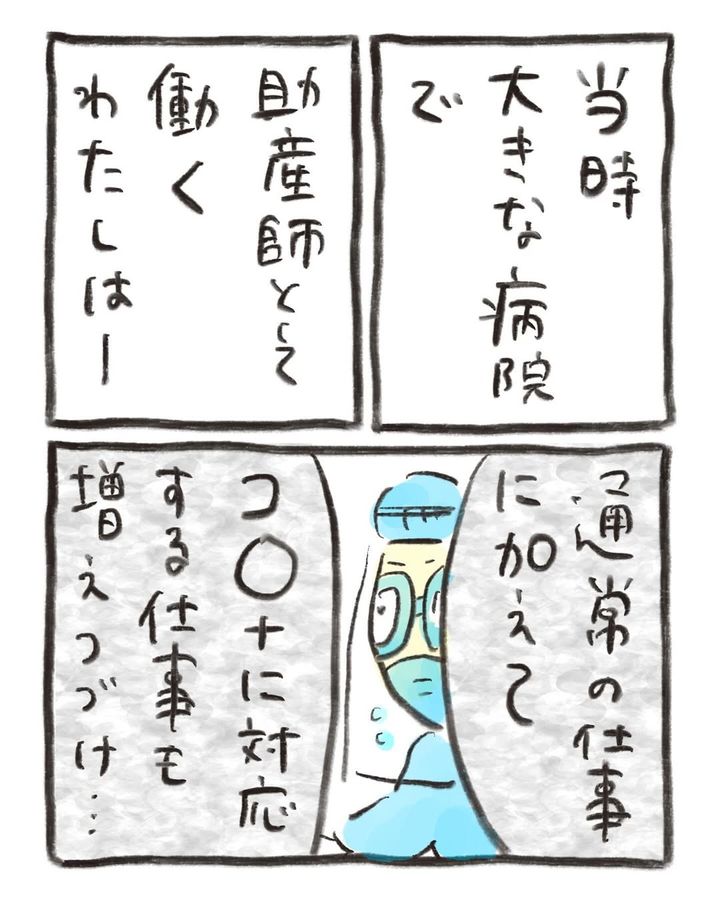 当時
大きな病院
で
助産師として
働く
わたしはー
通常の仕事
に加えて
コ〇ナに対応
する仕事も
増えつづけ…